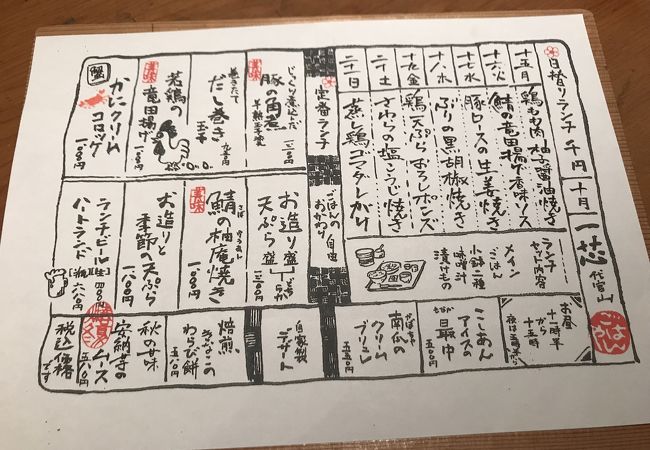 日替りランチ 千円 十月
十五月 鶏もも肉 柚子醤油焼き
十六火 鯖の竜田揚げ 香味ソース
十七水 豚ロースの生姜焼き
十八木 ぶりの黒胡椒焼き
十九金 鶏天ぷら おろしポンズ
二十土 さわらの塩こうじ焼き
二十一日 蒸し鶏 ゴマダレがけ
一芯
代官山
ごはんや
ランチセット内容
メイン
ごはん
小鉢二種
味噌汁
漬けもの
お昼
十一時半
から
十五時
定番ランチ
ごはんの
おかわり自由
じっくり煮込んだ
豚の角煮
半熟玉子
巻きたて
だし巻き
玉子
若鶏の
竜田揚げ
蟹
かにクリーム
コロッケ
お造り盛
天ぷら盛
どちらか
鯖の柚庵焼き
さば
ゆうあん
お造りと
季節の天ぷら
ランチビール
ハートランド
こしあん
アイスの
最中
五五〇円
かぼちゃ
南瓜の
クリーム
ブリュレ
自家製
デザート
焙煎
きなこの
わらび餅
五五〇円
秋の甘味
安納芋の
ムース
五八〇円
税込価格
です